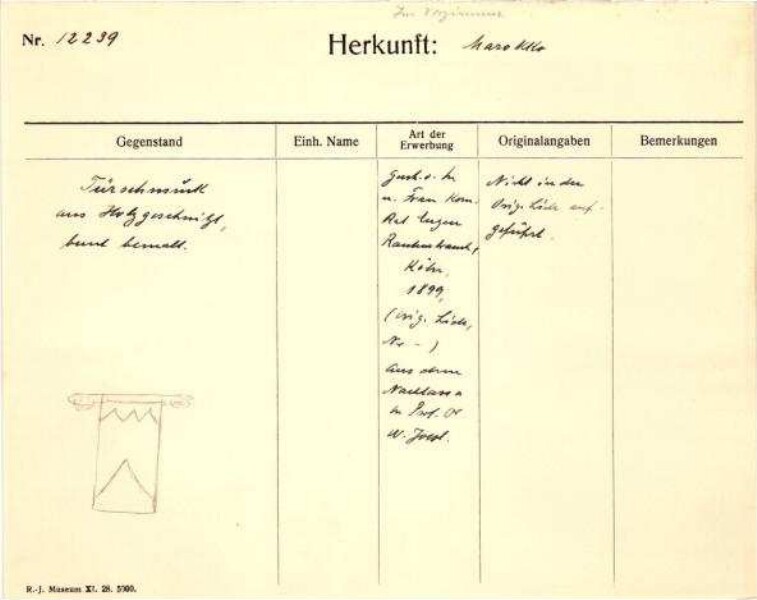 Nr. 12239
Herkunft: Marokko
Gegenstand
Einh. Name
Art der
Erwerbung
Originalangaben
Bemerkungen
Türschmuck
aus Holz geschnitzt,
bunt bemalt.
u. Frau Kom.
Rat Eugen
Rautenstrauch,
Köln,
1899,
(Orig. Liste,
Nr -)
Aus dem
Nachlass
Prof. Dr
W. Joest.
Nicht in der
Orig. Liste auf-
geführt.
R.-J. Museum XI. 28. 5000.